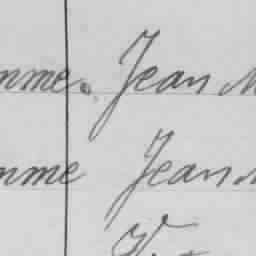 mme. Jean M
mme Jean